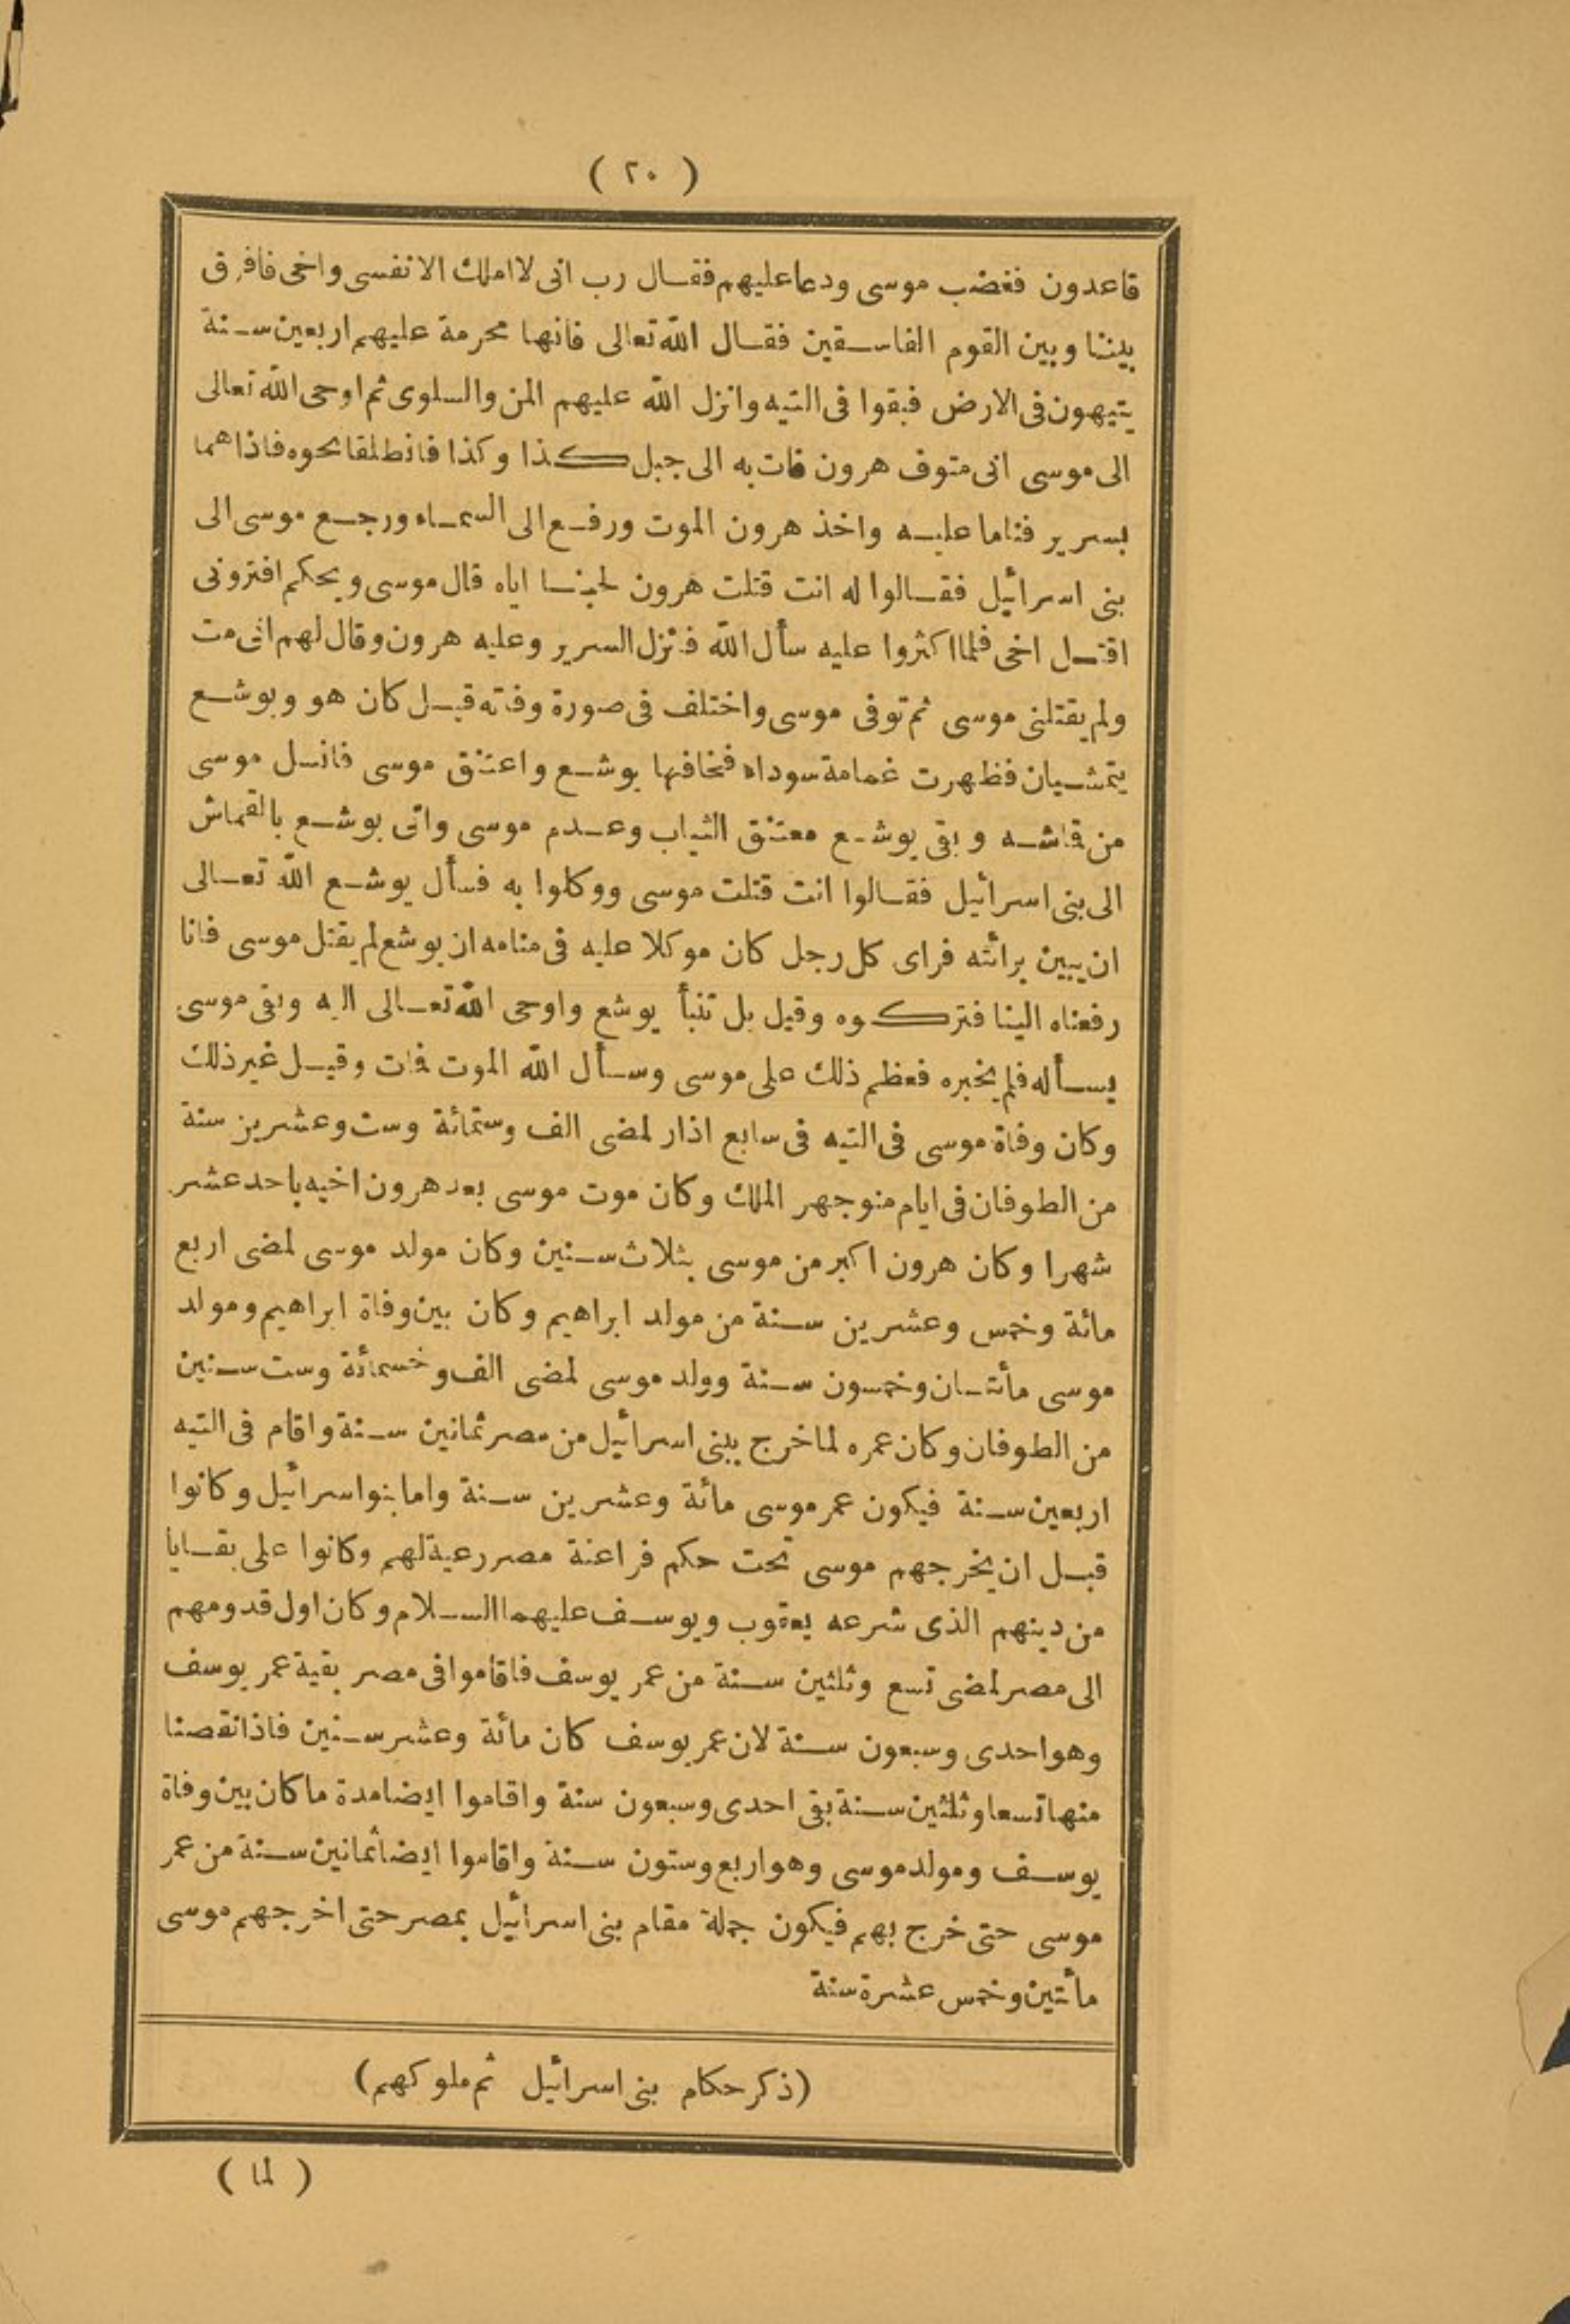 ( ٢٠ )
قاعدون فغضب موسى ودعا عليهم فقال رب انى لا املك الا نفسى واخى فافرق
بيننا وبين القوم الفاسقين فقال الله تعالى فانها محرمة عليهم اربعين سنة
يتيهون فى الارض فبقوا فى التيه وانزل الله عليهم المن والسلوى ثم اوحى الله تعالى
الى موسى انى متوف هرون فات به الى جبل كذا وكذا فانطلقا نحوه فاذا هما
بسرير فناما عليه واخذ هرون الموت ورفع الى السماء ورجع موسى الى
بنى اسرائيل فقالوا له انت قتلت هرون لحبنا اياه قال موسى ويحكم افترونى
اقتل اخى فلما اكثروا عليه سأل الله فنزل السرير وعليه هرون وقال لهم انى مت
ولم يقتلنى موسى ثم توفى موسى واختلف فى صورة وفاته قيل كان هو ويوشع
يتمشيان فظهرت غمامة سوداء فخافها يوشع واعتنق موسى فانسل موسى
من قاشه وبقى يوشع معتنق الثياب وعدم موسى واتى يوشع بالقماش
الى بنى اسرائيل فقالوا انت قتلت موسى ووكلوا به فسأل يوشع الله تعالى
ان يبين برائته فراى كل رجل كان موكلا عليه فى منامه ان يوشع لم يقتل موسى فانا
رفعناه الينا فتركوه وقيل بل تنبأ يوشع واوحى الله تعالى اليه وبقى موسى
يسأله فلم يخبره فعظم ذلك على موسى وسأل الله الموت فات وقيل غير ذلك
وكان وفاة موسى فى التيه فى سابع اذار لمضى الف وستمائة وست وعشرين سنة
من الطوفان فى ايام منوجهر الملك وكان موت موسى بعد هرون اخيه باحد عشر
شهرا وكان هرون اكبر من موسى بثلاث سنين وكان مولد موسى لمضى اربع
مائة وخمس وعشرين سنة من مولد ابراهيم وكان بين وفاة ابراهيم ومولد
موسى مأتان وخمسون سنة وولد موسى لمضى الف وخسمائة وست سنين
من الطوفان وكان عمره لما خرج ببنى اسرائيل من مصر ثمانين سنة واقام فى التيه
اربعين سنة فيكون عمر موسى مائة وعشرين سنة واما بنوا اسرائيل وكانوا
قبل ان يخرجهم موسى تحت حكم فراعنة مصر رعية لهم وكانوا على بقايا
من دينهم الذى شرعه يعقوب ويوسف عليهما السلام وكان اول قدومهم
الى مصر لمضى تسع وثلثين سنة من عمر يوسف فاقاموا فى مصر بقية عمر يوسف
وهو احدى وسبعون سنة لان عمر يوسف كان مائة وعشر سنين فاذا نقصنا
منها تسعا وثلثين سنة بقى احدى وسبعون سنة واقاموا ايضا مدة ما كان بين وفاة
يوسف ومولد موسى وهو اربع وستون سنة واقاموا ايضا ثمانين سنة من عمر
موسى حتى خرج بهم فيكون جملة مقام بنى اسرائيل بمصر حتى اخرجهم موسى
مأتين وخمس عشرة سنة
(ذكر حكام بنى اسرائيل ثم ملوكهم)
( لما )